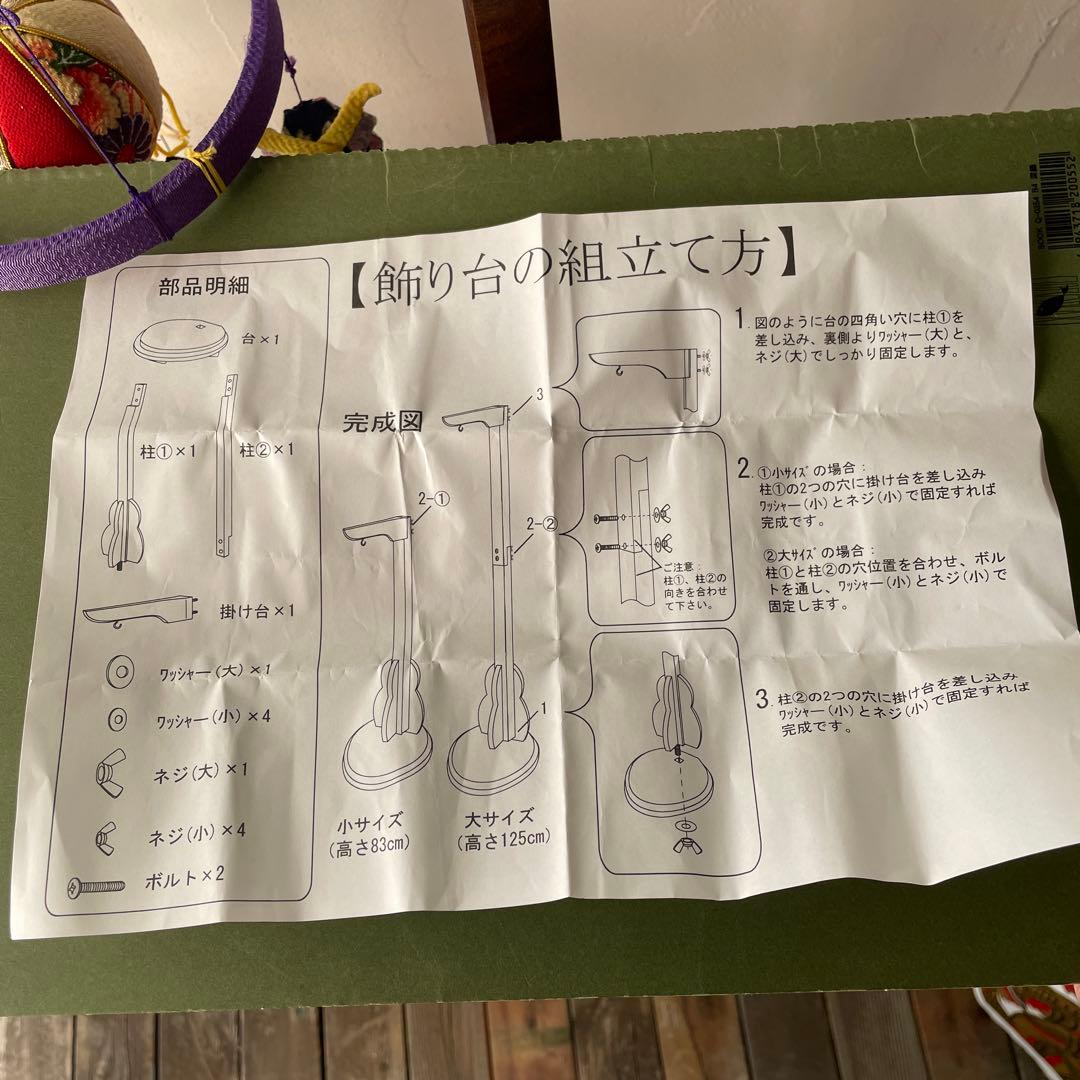 【飾り台の組立て方】
部品明細
台×1
柱①×1
柱②×1
掛け台×1
ﾜｯｼｬｰ(大)×1
ﾜｯｼｬｰ(小)×4
ネジ(大)×1
ネジ(小)×4
ボルト×2
完成図
3
2-①
2-②
1
小サイズ
(高さ83cm)
大サイズ
(高さ125cm)
ご注意:
柱①、柱②の
向きを合わせ
て下さい。
1.図のように台の四角い穴に柱①を
差し込み、裏側よりﾜｯｼｬｰ(大)と、
ネジ(大)でしっかり固定します。
2.①小ｻｲｽﾞの場合:
柱①の2つの穴に掛け台を差し込み
ﾜｯｼｬｰ(小)とネジ(小)で固定すれば
完成です。
②大ｻｲｽﾞの場合:
柱①と柱②の穴位置を合わせ、ボル
トを通し、ﾜｯｼｬｰ(小)とネジ(小)で
固定します。
3.柱②の2つの穴に掛け台を差し込み
ﾜｯｼｬｰ(小)とネジ(小)で固定すれば
完成です。